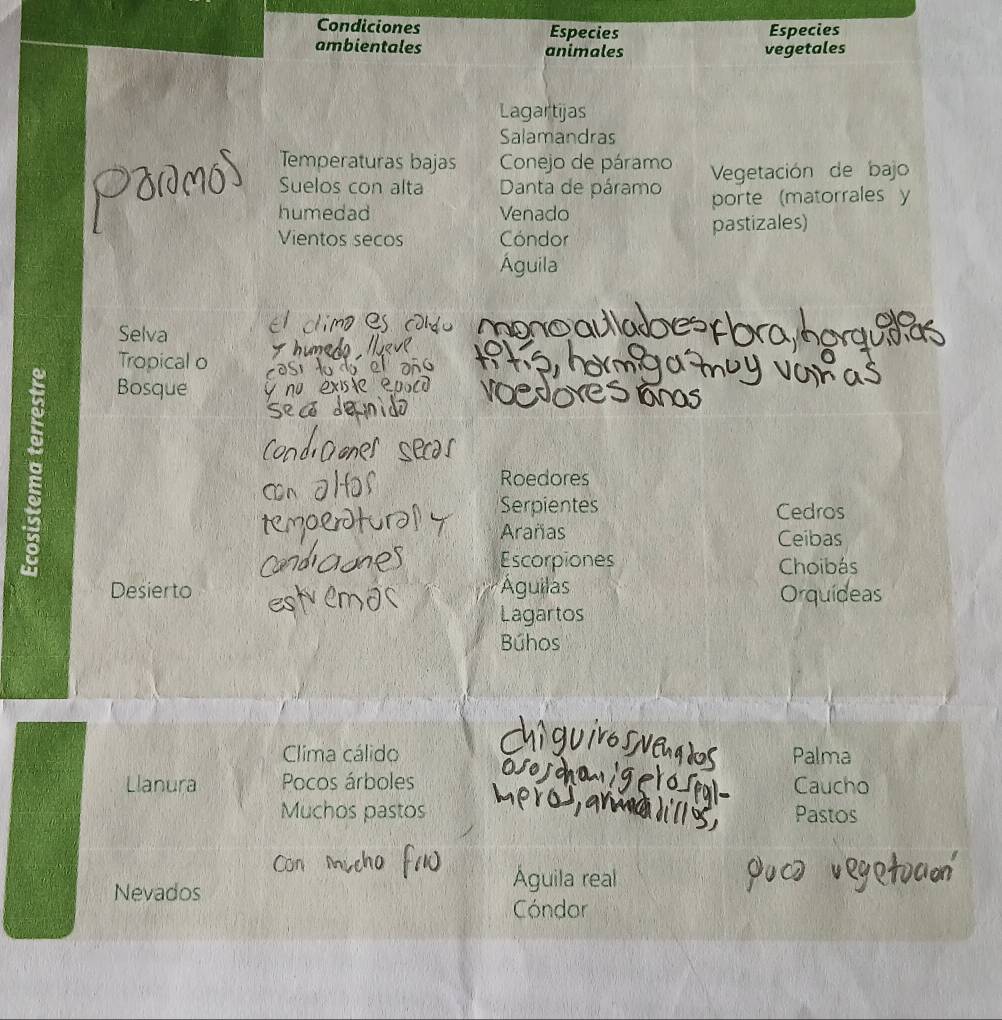 Condiciones ambientales
Especies animales
Especies vegetales
Ecosistema terrestre
paramos
Temperaturas bajas
Suelos con alta
humedad
Vientos secos
Lagartijas
Salamandras
Conejo de páramo
Danta de páramo
Venado
Cóndor
Águila
Vegetación de bajo
porte (matorrales y
pastizales)
Selva
Tropical o
Bosque
El clima es calido
y humedo, llueve
casi todo el año
y no existe epoca
seca
mono aulladores
hormiga muy varias
roedores ranas
Desierto
condiciones secas
con altas
temperatural y
condiciones
estremas
Roedores
Serpientes
Arañas
Escorpiones
Águilas
Lagartos
Búhos
Cedros
Ceibas
Choibás
Orquídeas
Llanura
Clima cálido
Pocos árboles
Muchos pastos
chiguiros, venados
osos
meros, armadillos,
Palma
Caucho
Pastos
Nevados
con mucho frio
Águila real
Cóndor
poca vegetacion